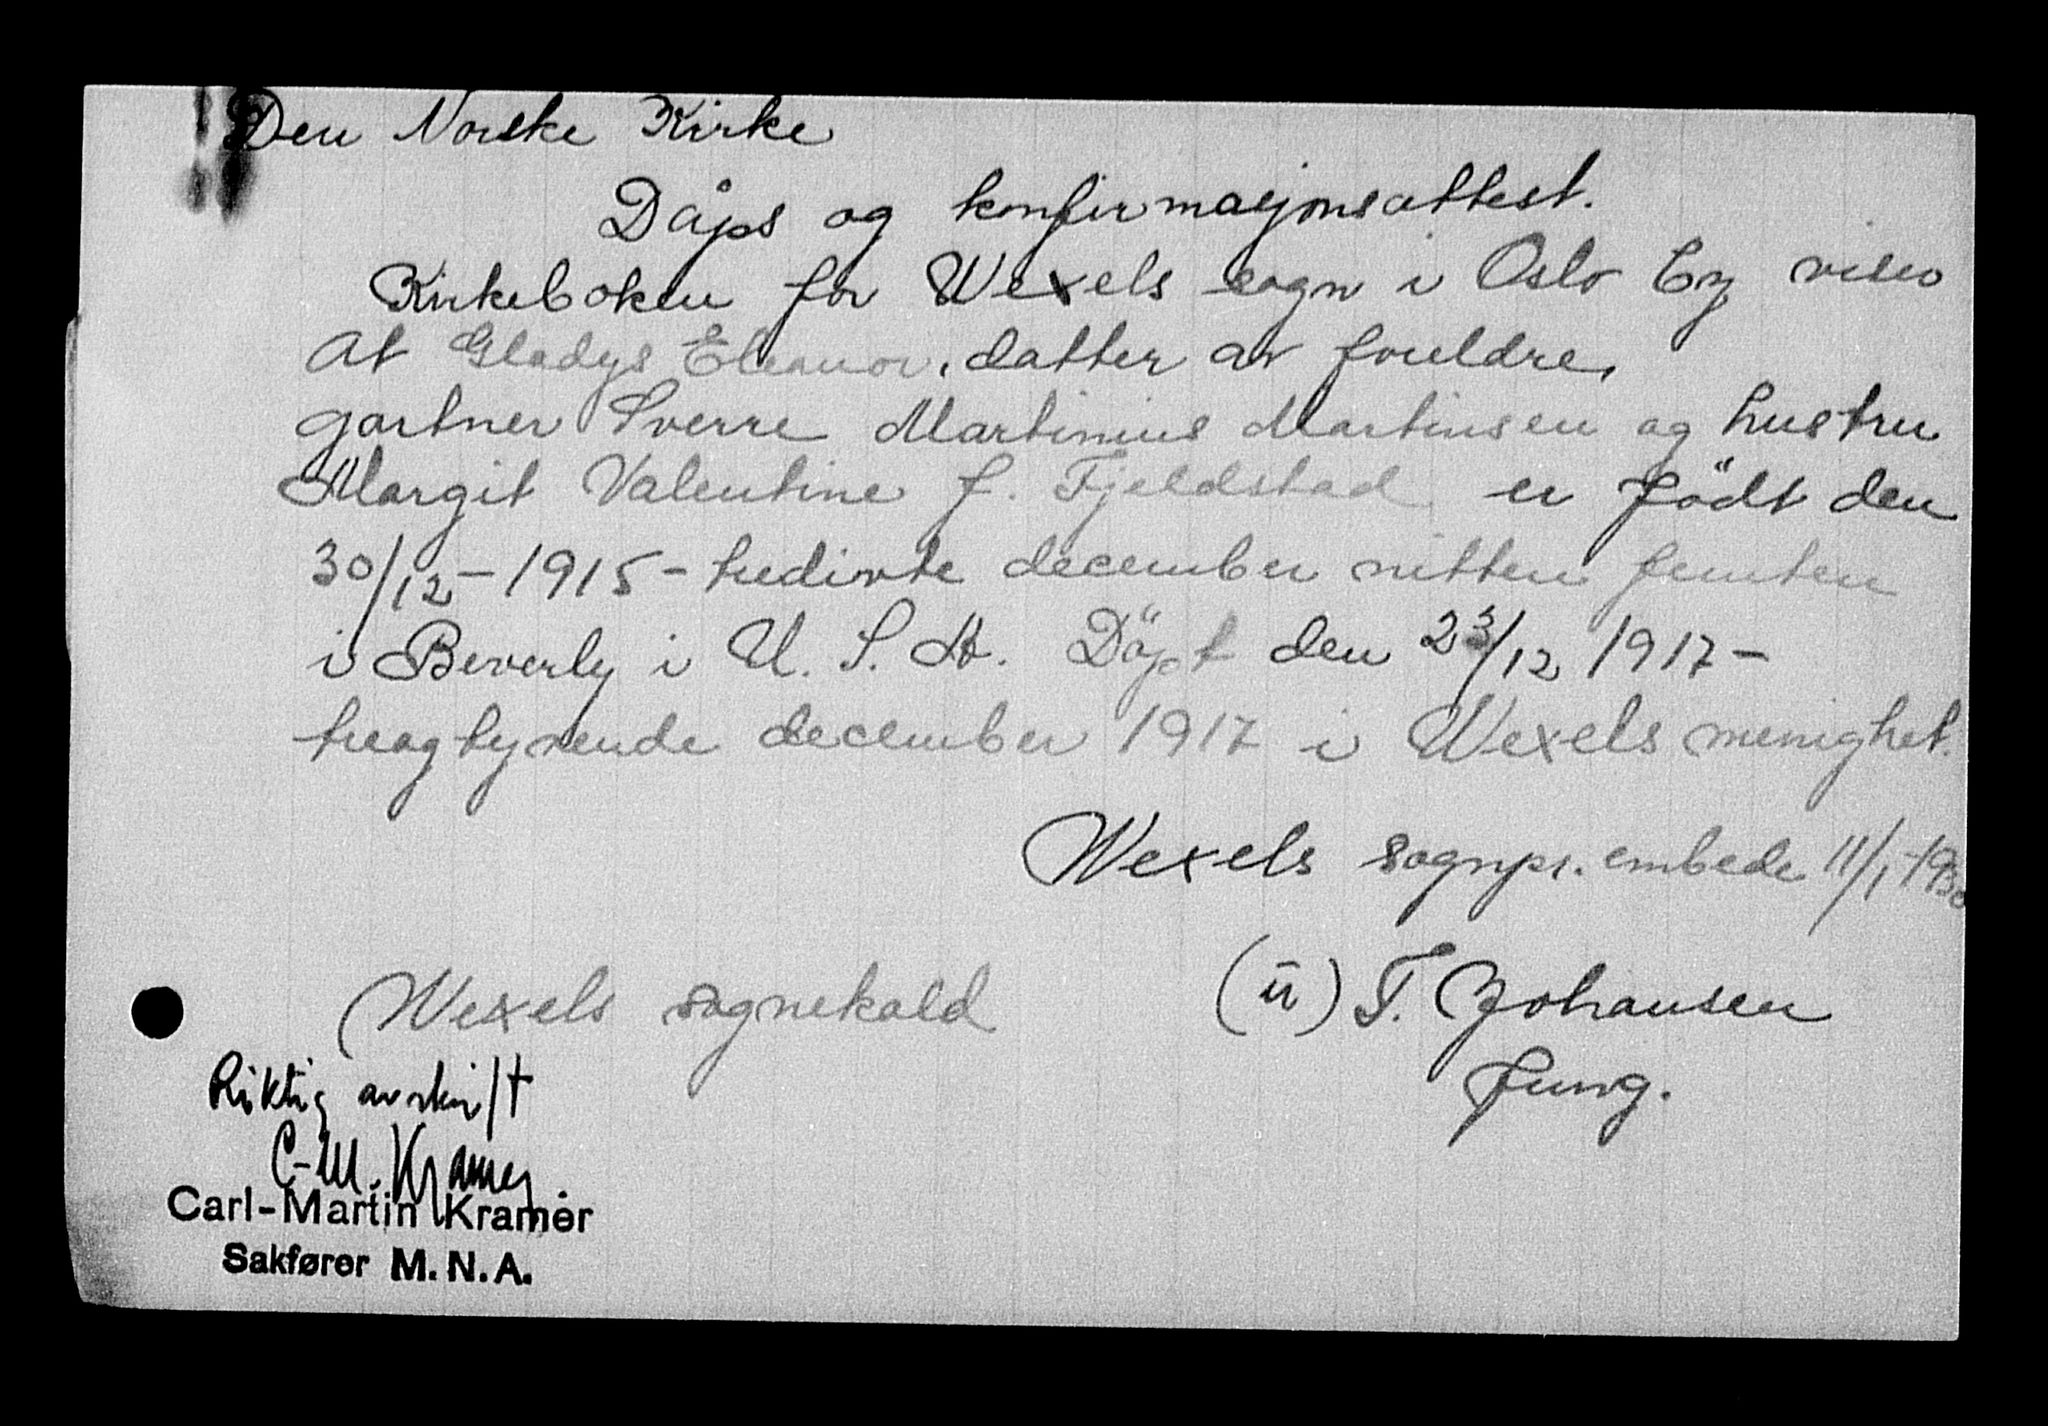 Den Norske Kirke
Dåps og konfirmasjonsattest.
Kirkeboken for Wexels sogn i Oslo by viser
at Gladys Eleanor, datter av foreldre,
gartner Sverre Martinius Martinsen og hustru
Margit Valentine f. Fjeldstad er födt den
30/12 - 1915 - tredivte december nitten femten
i Beverly i U. S. A. Döpt den 23/12 1917 -
treogtyvende december 1917 i Wexels menighet.
Wexels sognpr. embede 11/1-
Wexels sognekald
(u) T. Johansen
fung.
Riktig avskrift
C-M. Kramer
Carl-Martin Kramer
Sakfører M. N. A.